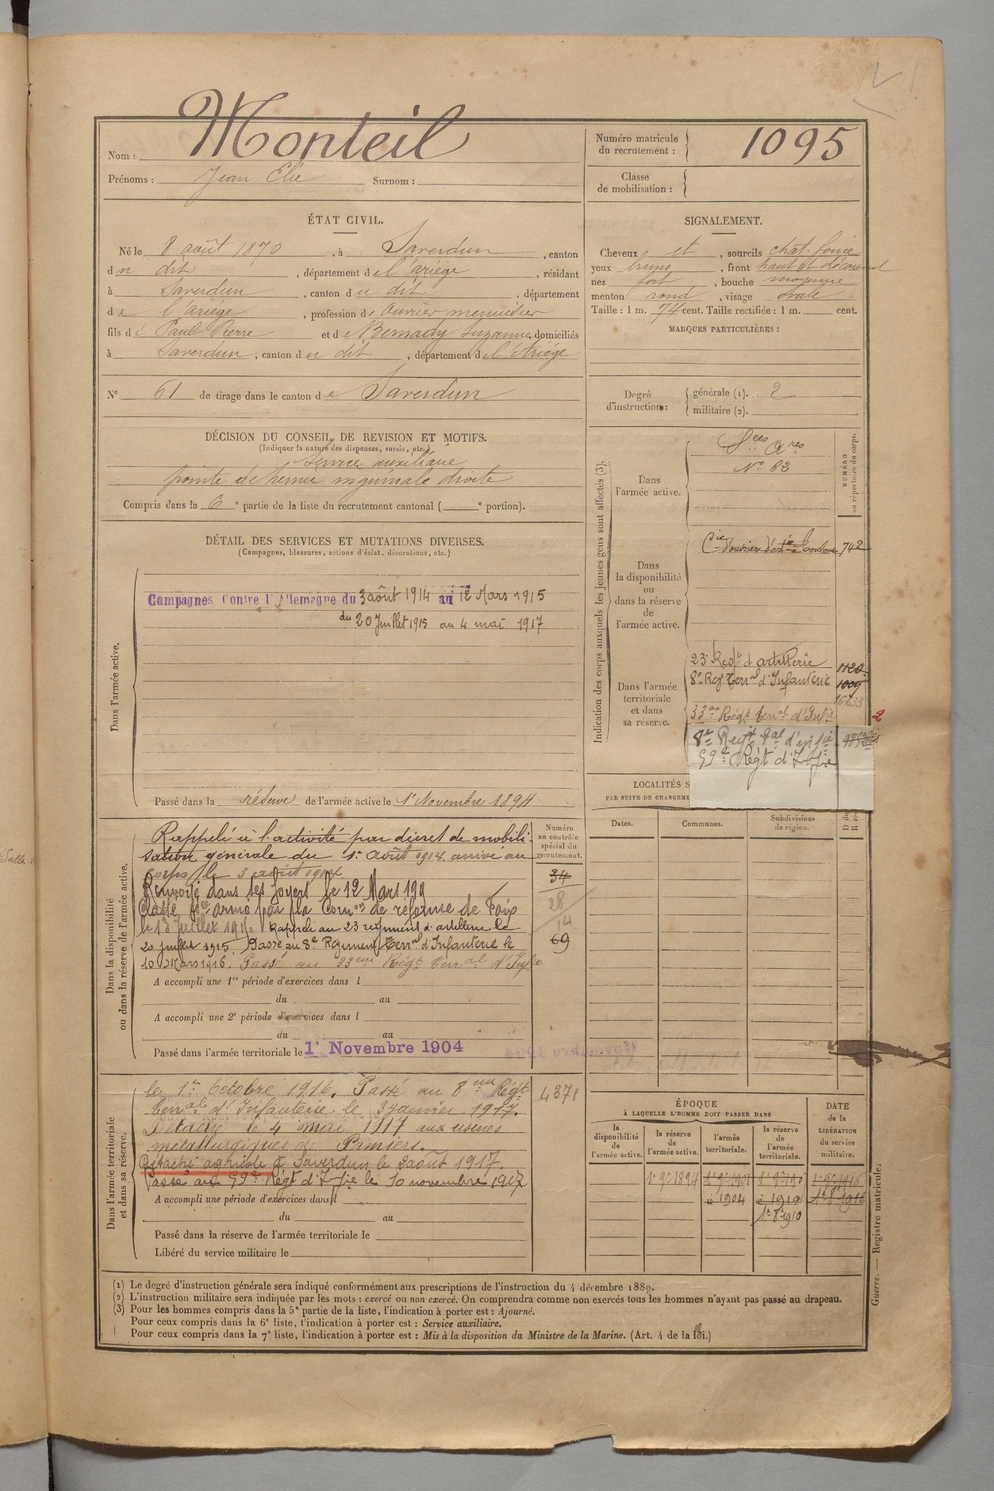 Nom : Monteil
Prénoms : Jean Elie Surnom :
Numéro matricule du recrutement : 1095
Classe de mobilisation :
ÉTAT CIVIL.
Né le 8 août 1870, à Saverdun, canton
du dit, département de l'ariège, résidant
à Saverdun, canton du dit, département
de l'ariège, profession d'ouvrier menuisier
fils de Paul Pierre et de Bernady Suzanne, domiciliés
à Saverdun, canton du dit, département de l'Ariège
N° 61 de tirage dans le canton de Saverdun
SIGNALEMENT.
Cheveux et, sourcils chat. foncé
yeux bruns, front haut et découvert
nez fort, bouche moyenne
menton rond, visage ovale
Taille : 1 m. 74 cent. Taille rectifiée : 1 m. cent.
MARQUES PARTICULIÈRES :
Degré d'instruction : générale (1). 2
militaire (2).
DÉCISION DU CONSEIL DE REVISION ET MOTIFS.
(Indiquer la nature des dispenses, sursis, etc.)
Service auxiliaire
pointe de hernie inguinale droite
Compris dans la 6e partie de la liste du recrutement cantonal ( e portion).
DÉTAIL DES SERVICES ET MUTATIONS DIVERSES.
(Campagnes, blessures, actions d'éclat, décorations, etc.)
Dans l'armée active.
Campagnes Contre l'Allemagne du 3 août 1914 au 12 Mars 1915
du 20 Juillet 1915 au 4 mai 1917
Passé dans la réserve de l'armée active le 1er Novembre 1894
Indication des corps auxquels les jeunes gens sont affectés (3).
NUMÉRO au répertoire du corps.
Dans l'armée active.
Sces Ares
N° 82
Dans la disponibilité ou dans la réserve de l'armée active.
Cie d'ouvriers d'artie Toulouse 742
Dans l'armée territoriale et dans sa réserve.
23e Regt d'artillerie 1120
8e Reg Terral d'Infanterie 1009
33me Régt terral d'Infie 2
8e Regt tal d'infie
59e Régt d'Infie
LOCALITÉS S
PAR SUITE DE CHANGEME
Dates. Communes. Subdivisions de région.
Dans la disponibilité ou dans la réserve de l'armée active.
Numéro au contrôle spécial du recrutement.
Rappelé à l'activité par décret de mobili-
sation générale du 1er août 1904. arrivé au
corps le 3 août 1904.
Renvoyé dans ses foyers le 12 Mars 191
Classé sce armé par la Comon de réforme de Foix
le 13 Juillet 1915. Rappelé au 23 régiment d'artillerie le
20 juillet 1915. Passé au 8e Régiment Terral d'Infanterie le
10 Mars 1916. Passé au 33eme Régt terral d'Infie
34
28
14
69
A accompli une 1re période d'exercices dans l
du au
A accompli une 2e période d'exercices dans l
du au
Passé dans l'armée territoriale le 1er Novembre 1904
Dans l'armée territoriale et dans sa réserve.
le 1er Octobre 1916. Passé au 8eme Régt
terral d'Infanterie le 3 janvier 1917.
Détaché le 4 mai 1917 aux usines
métallurgiques de Pamiers.
Détaché agricole à Saverdun le 2 août 1917.
Passé au 59e Régt d'Infie le 10 novembre 1917.
4371
A accompli une période d'exercices dans l
du au
Passé dans la réserve de l'armée territoriale le
Libéré du service militaire le
ÉPOQUE
À LAQUELLE L'HOMME DOIT PASSER DANS
la disponibilité de l'armée active.
la réserve de l'armée active.
l'armée territoriale.
la réserve de l'armée territoriale.
DATE de la LIBÉRATION du service militaire.
1er 9e 1894
1904
1910
1er 8e 1910
1er 9e 1916
1er 8e 1916
Guerre. — Registre matricule.
(1) Le degré d'instruction générale sera indiqué conformément aux prescriptions de l'instruction du 4 décembre 1889.
(2) L'instruction militaire sera indiquée par les mots : exercé ou non exercé. On comprendra comme non exercés tous les hommes n'ayant pas passé au drapeau.
(3) Pour les hommes compris dans la 5e partie de la liste, l'indication à porter est : Ajourné.
Pour ceux compris dans la 6e liste, l'indication à porter est : Service auxiliaire.
Pour ceux compris dans la 7e liste, l'indication à porter est : Mis à la disposition du Ministre de la Marine. (Art. 4 de la loi.)